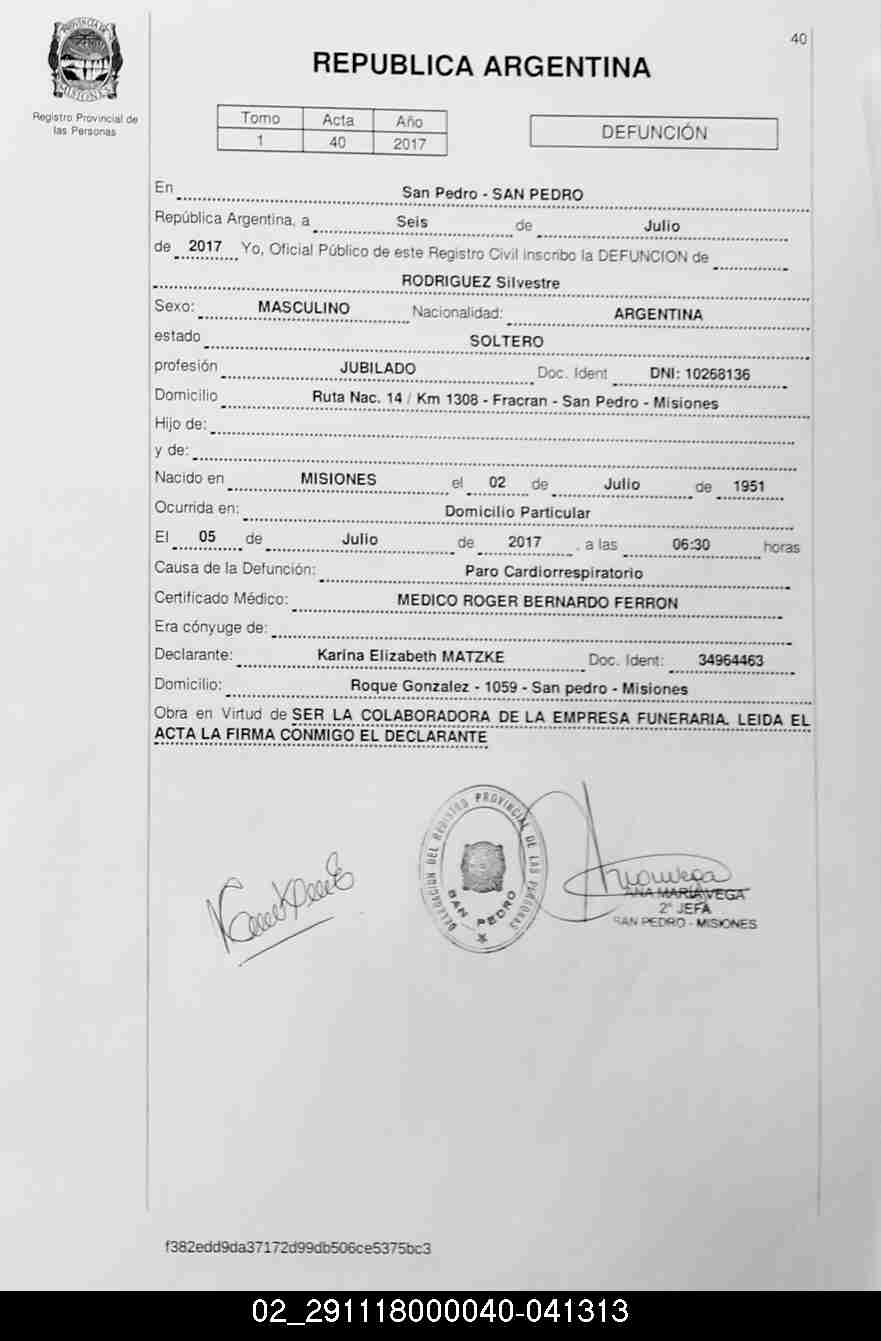 40
PROVINCIA DE
MISIONES
Registro Provincial de
las Personas
REPUBLICA ARGENTINA
Tomo Acta Año
1 40 2017
DEFUNCIÓN
En San Pedro - SAN PEDRO
República Argentina, a Seis de Julio
de 2017 Yo, Oficial Público de este Registro Civil inscribo la DEFUNCION de
RODRIGUEZ Silvestre
Sexo: MASCULINO Nacionalidad: ARGENTINA
estado SOLTERO
profesión JUBILADO Doc. Ident DNI: 10268136
Domicilio Ruta Nac. 14 / Km 1308 - Fracran - San Pedro - Misiones
Hijo de:
y de:
Nacido en MISIONES el 02 de Julio de 1951
Ocurrida en: Domicilio Particular
El 05 de Julio de 2017 , a las 06:30 horas
Causa de la Defunción: Paro Cardiorrespiratorio
Certificado Médico: MEDICO ROGER BERNARDO FERRON
Era cónyuge de:
Declarante: Karina Elizabeth MATZKE Doc. Ident: 34964463
Domicilio: Roque Gonzalez - 1059 - San pedro - Misiones
Obra en Virtud de SER LA COLABORADORA DE LA EMPRESA FUNERARIA. LEIDA EL
ACTA LA FIRMA CONMIGO EL DECLARANTE
DELEGACION DEL REGISTRO PROVINCIAL DE LAS PERSONAS
SAN PEDRO
ANA MARIA VEGA
2° JEFA
SAN PEDRO - MISIONES
f382edd9da37172d99db506ce5375bc3
02_291118000040-041313